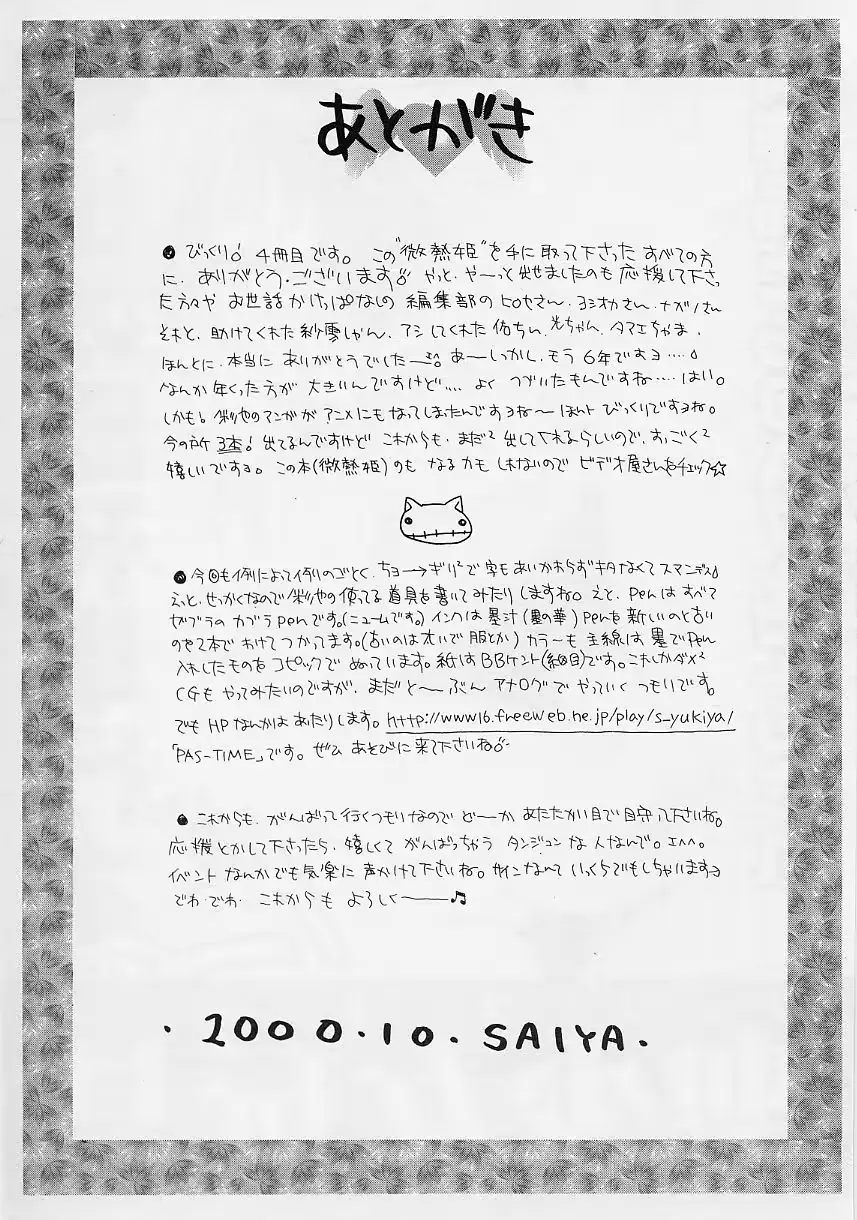 あとがき
● びっくり♪ 4冊目です。 この"微熱姫"を手に取って下さった すべての方
に、ありがとう・ございます!! やっと、や〜っと 出せましたのも 応援して下さっ
た方々や お世話かけっぱなしの 編集部のヒロセさん、ヨシオカさん、ナガノさん
それと、助けてくれた 紗雪しゃん、アシしてくれた 佑ちん、光ちゃん、タマエちゃま、
ほんとに、本当に ありがとうでした あーしかし、もう 6年ですョ‥‥
なんか 年くった方が 大きいんですけど‥‥ よく つづいたもんですね‥‥ はい。
しかも! 彩也のマンガが アニメにもなってしまたんですョね〜 ほんト びっくりですョね。
今の所 3本! 出てるんですけど これからも、まだ² 出して下れるらしいので、すっごく²
嬉しいですョ。 この本(微熱姫)のも なるカモ しれないので ビデオ屋さんをチェック☆
● 今回も例によって例のごとく、ちョー→ギリ²で 字も あいかわらず キタなくて スマンデス♪
えっと、せっかくなので 彩也の使ってる 道具を書いてみたりしますね。 えと、Penは すべて
ゼブラの カブラPenです。(ニュームです。) インクは 墨汁(墨の華) Penを 新しいのと古い
のせて2本で わけて つかってます。(古いのは オいで 服とか) カラーも 主線は 墨でPen
入れしたものを コピックで ぬっています。 紙は BBケント(細目)です。 これしかダメ²
CGも やってみたいのですが、 まだ と〜 ぶん アナログで やっていく つもりです。
でも HPなんかは あたりします。 http://www16.freeweb.ne.jp/play/s_yukiya/
「PAS-TIME」です。 ぜひ あそびに来て下さいね
● これからも、がんばって行くつもりなので ど〜か あたたかい目で 目守って下さいね。
応援とかして下さったら、嬉しくて がんばっちゃう タンジュン な 人なんで。エヘヘ。
イベント なんかでも 気楽に 声かけて下さいね。 サインなんて いっくらでもしちゃいますョ
でわ・でわ・ これからも よろしく〜♫
・2000・10・SAIYA・